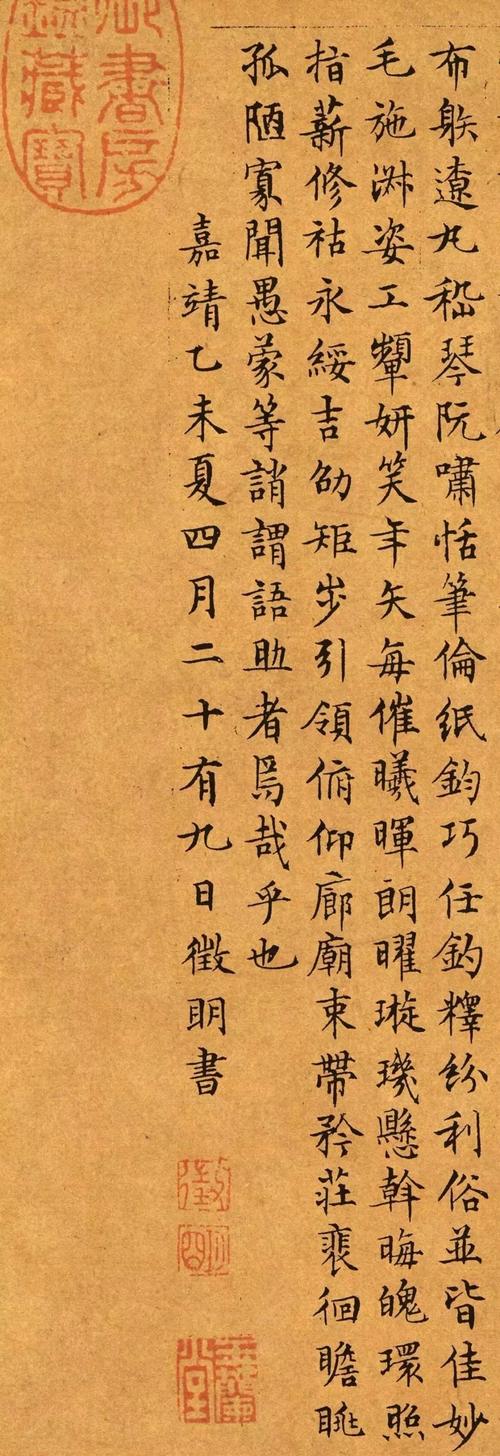 布䠶遼丸嵇琴阮嘯恬筆倫紙鈞巧任釣釋紛利俗並皆佳妙
毛施淑姿工顰妍笑年矢每催曦暉朗曜璇璣懸斡晦魄環照
指薪修祜永綏吉劭矩步引領俯仰廊廟束帶矜莊裴徊瞻眺
孤陋寡聞愚蒙等誚謂語助者焉哉乎也
嘉靖乙未夏四月二十有九日徵明書
徵明
玉蘭堂
御書房鑑藏寶